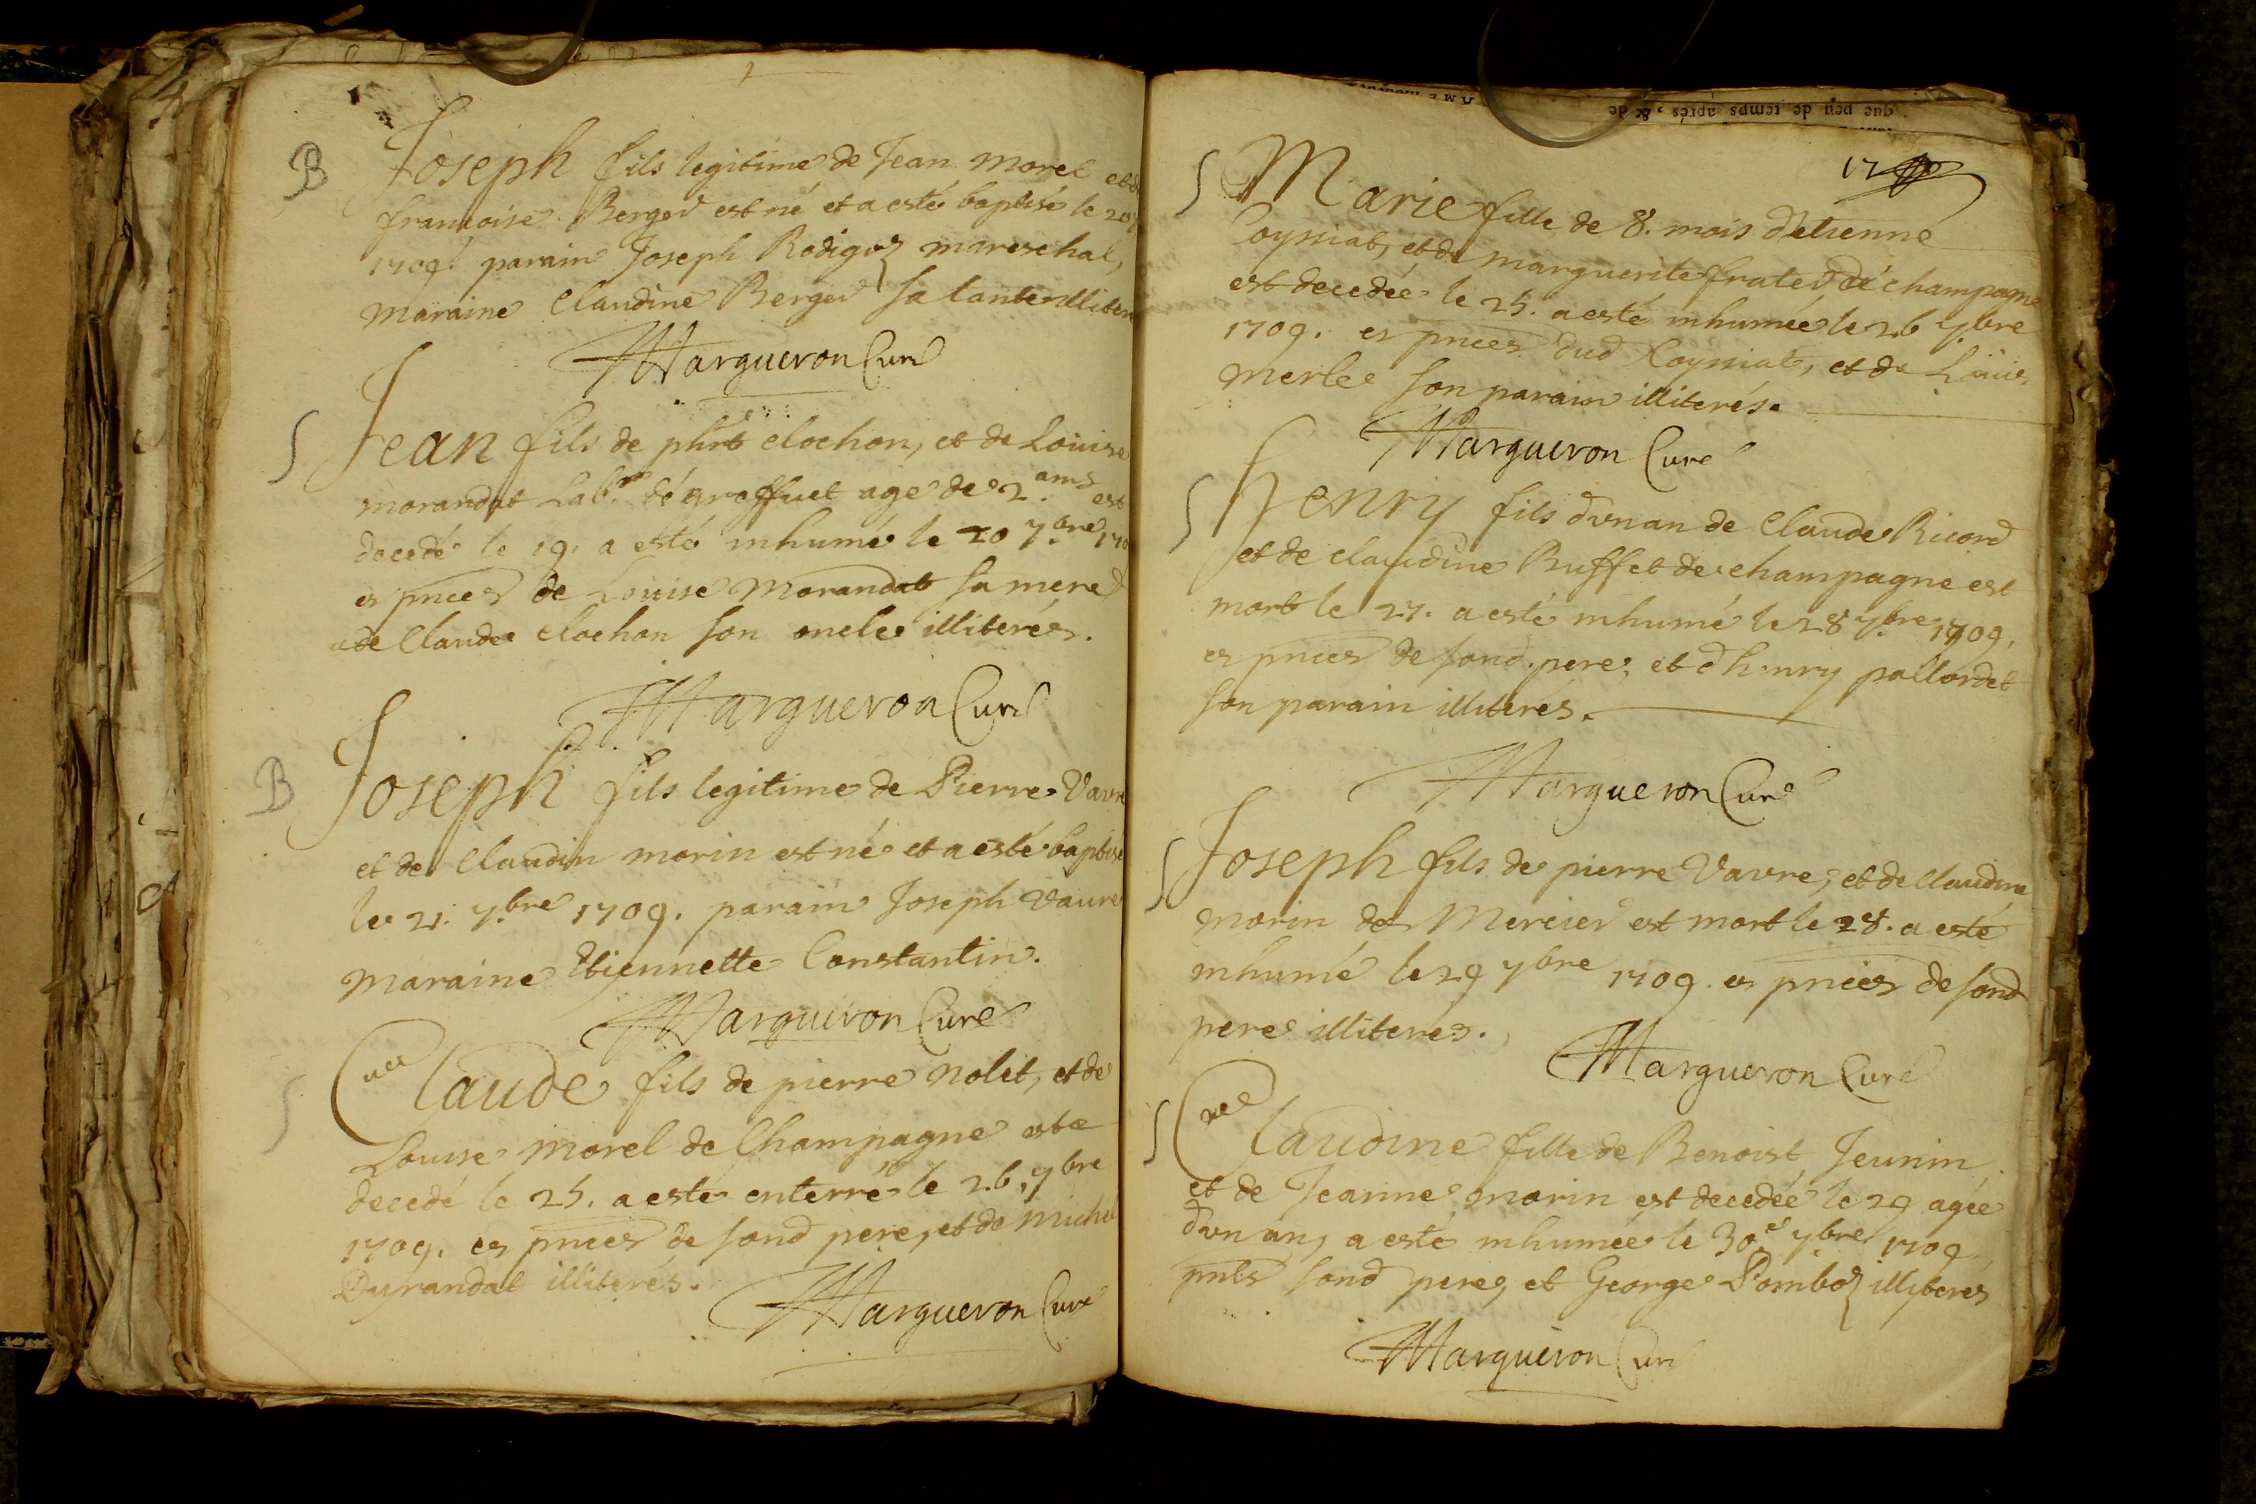 B Joseph fils legitime de Jean morel et de
francoise Berger est né et a esté baptisé le 20
1709. parain Joseph Rodigoz mareschal,
maraine Claudine Berger sa tante illiter
Margueron Curé
S Jean fils de phrt clochon, et de Louise
morandat Labr. de graffuet age de 2. ans est
decedé le 19. a esté inhumé le 20 7.bre 170
es pnces de Louise morandat sa mere
de Claude clochon son oncle illiterés.
Margueron Curé
B Joseph fils legitime de Pierre Vavre
et de Claudin morin est né et a esté baptisé
le 21. 7.bre 1709. parain Joseph Vavre
maraine Etiennette Constantin.
Margueron Curé
S Claude fils de pierre nolet, et de
Louise morel de Champagne est
decedé le 25. a esté enterré le 26. 7bre
1709. es pnces de sond pere, et de Michel
Durandat illiterés.
Margueron Curé
17
S Marie fille de 8. mois d'etienne
Coysiat, et de marguerite frater de champagne
est decedée le 25. a esté inhumée le 26 7bre
1709. es pnces dud Coysiat, et de Louis
merle son parain illiterés.
Margueron Curé
S henry fils d'un an de Claude Ricord
et de claudine Buffet de champagne est
mort le 27. a esté inhumé le 28 7.bre 1709.
es pnces de sond. pere, et d'henry pallordet
son parain illiterés.
Margueron Curé
S Joseph fils de pierre Vavre, et de Claudine
morin de Mercier est mort le 28. a esté
inhumé le 29 7bre 1709. es pnces de sond
pere illiterés.
Margueron Curé
S Claudine fille de Benoist Jeunin
et de Jeanne morin est decedée le 29 agée
d'un an, a esté inhumée le 30.e 7.bre 1709
pnts sond pere, et George Pomboz illiterés
Margueron Curé